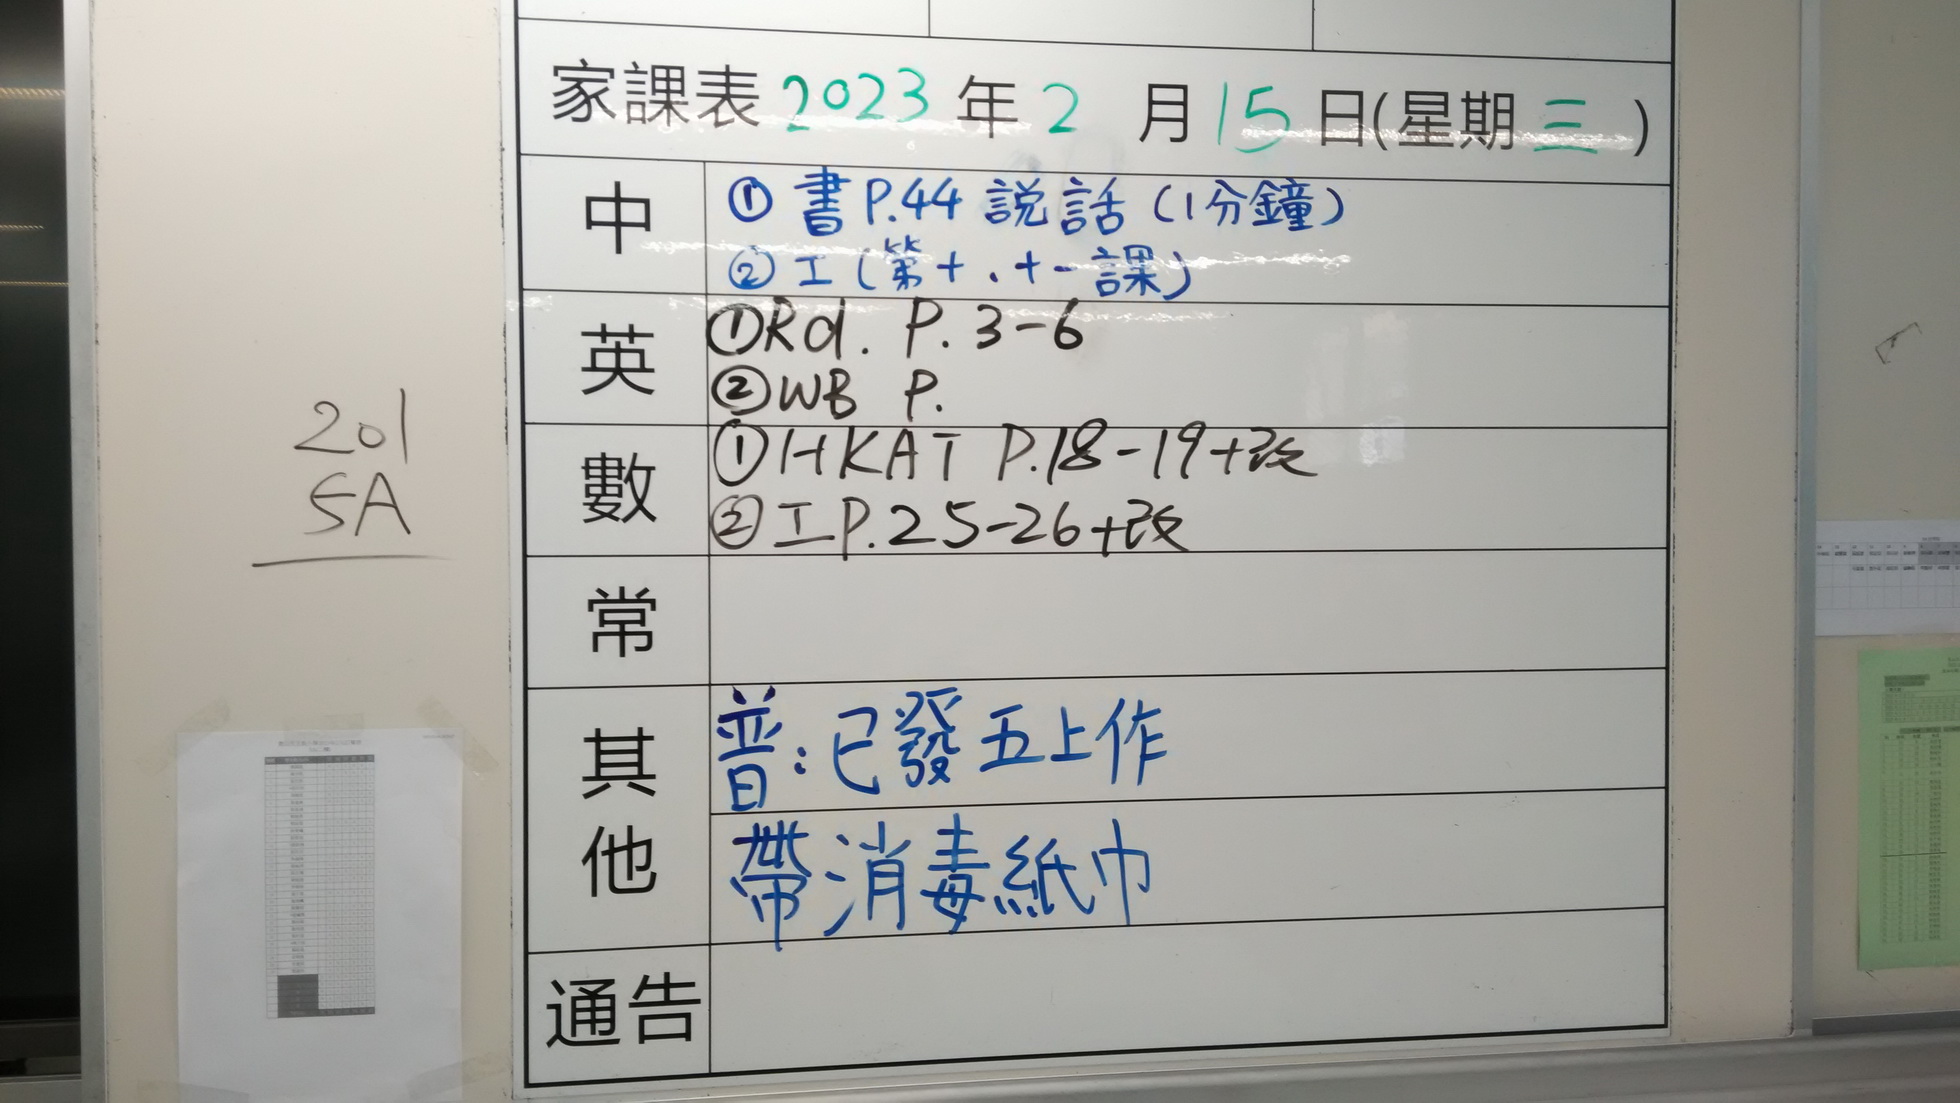 家課表 2023 年 2 月 15 日(星期 三 )
中
① 書 P.44 說話 (1分鐘)
② 工 (第十.十一課)
英
① Rd. P. 3-6
② WB P.
數
① HKAT P.18-19+改
② 工 P.25-26+改
常
其他
普:已發五上作
帶消毒紙巾
通告
201
5A